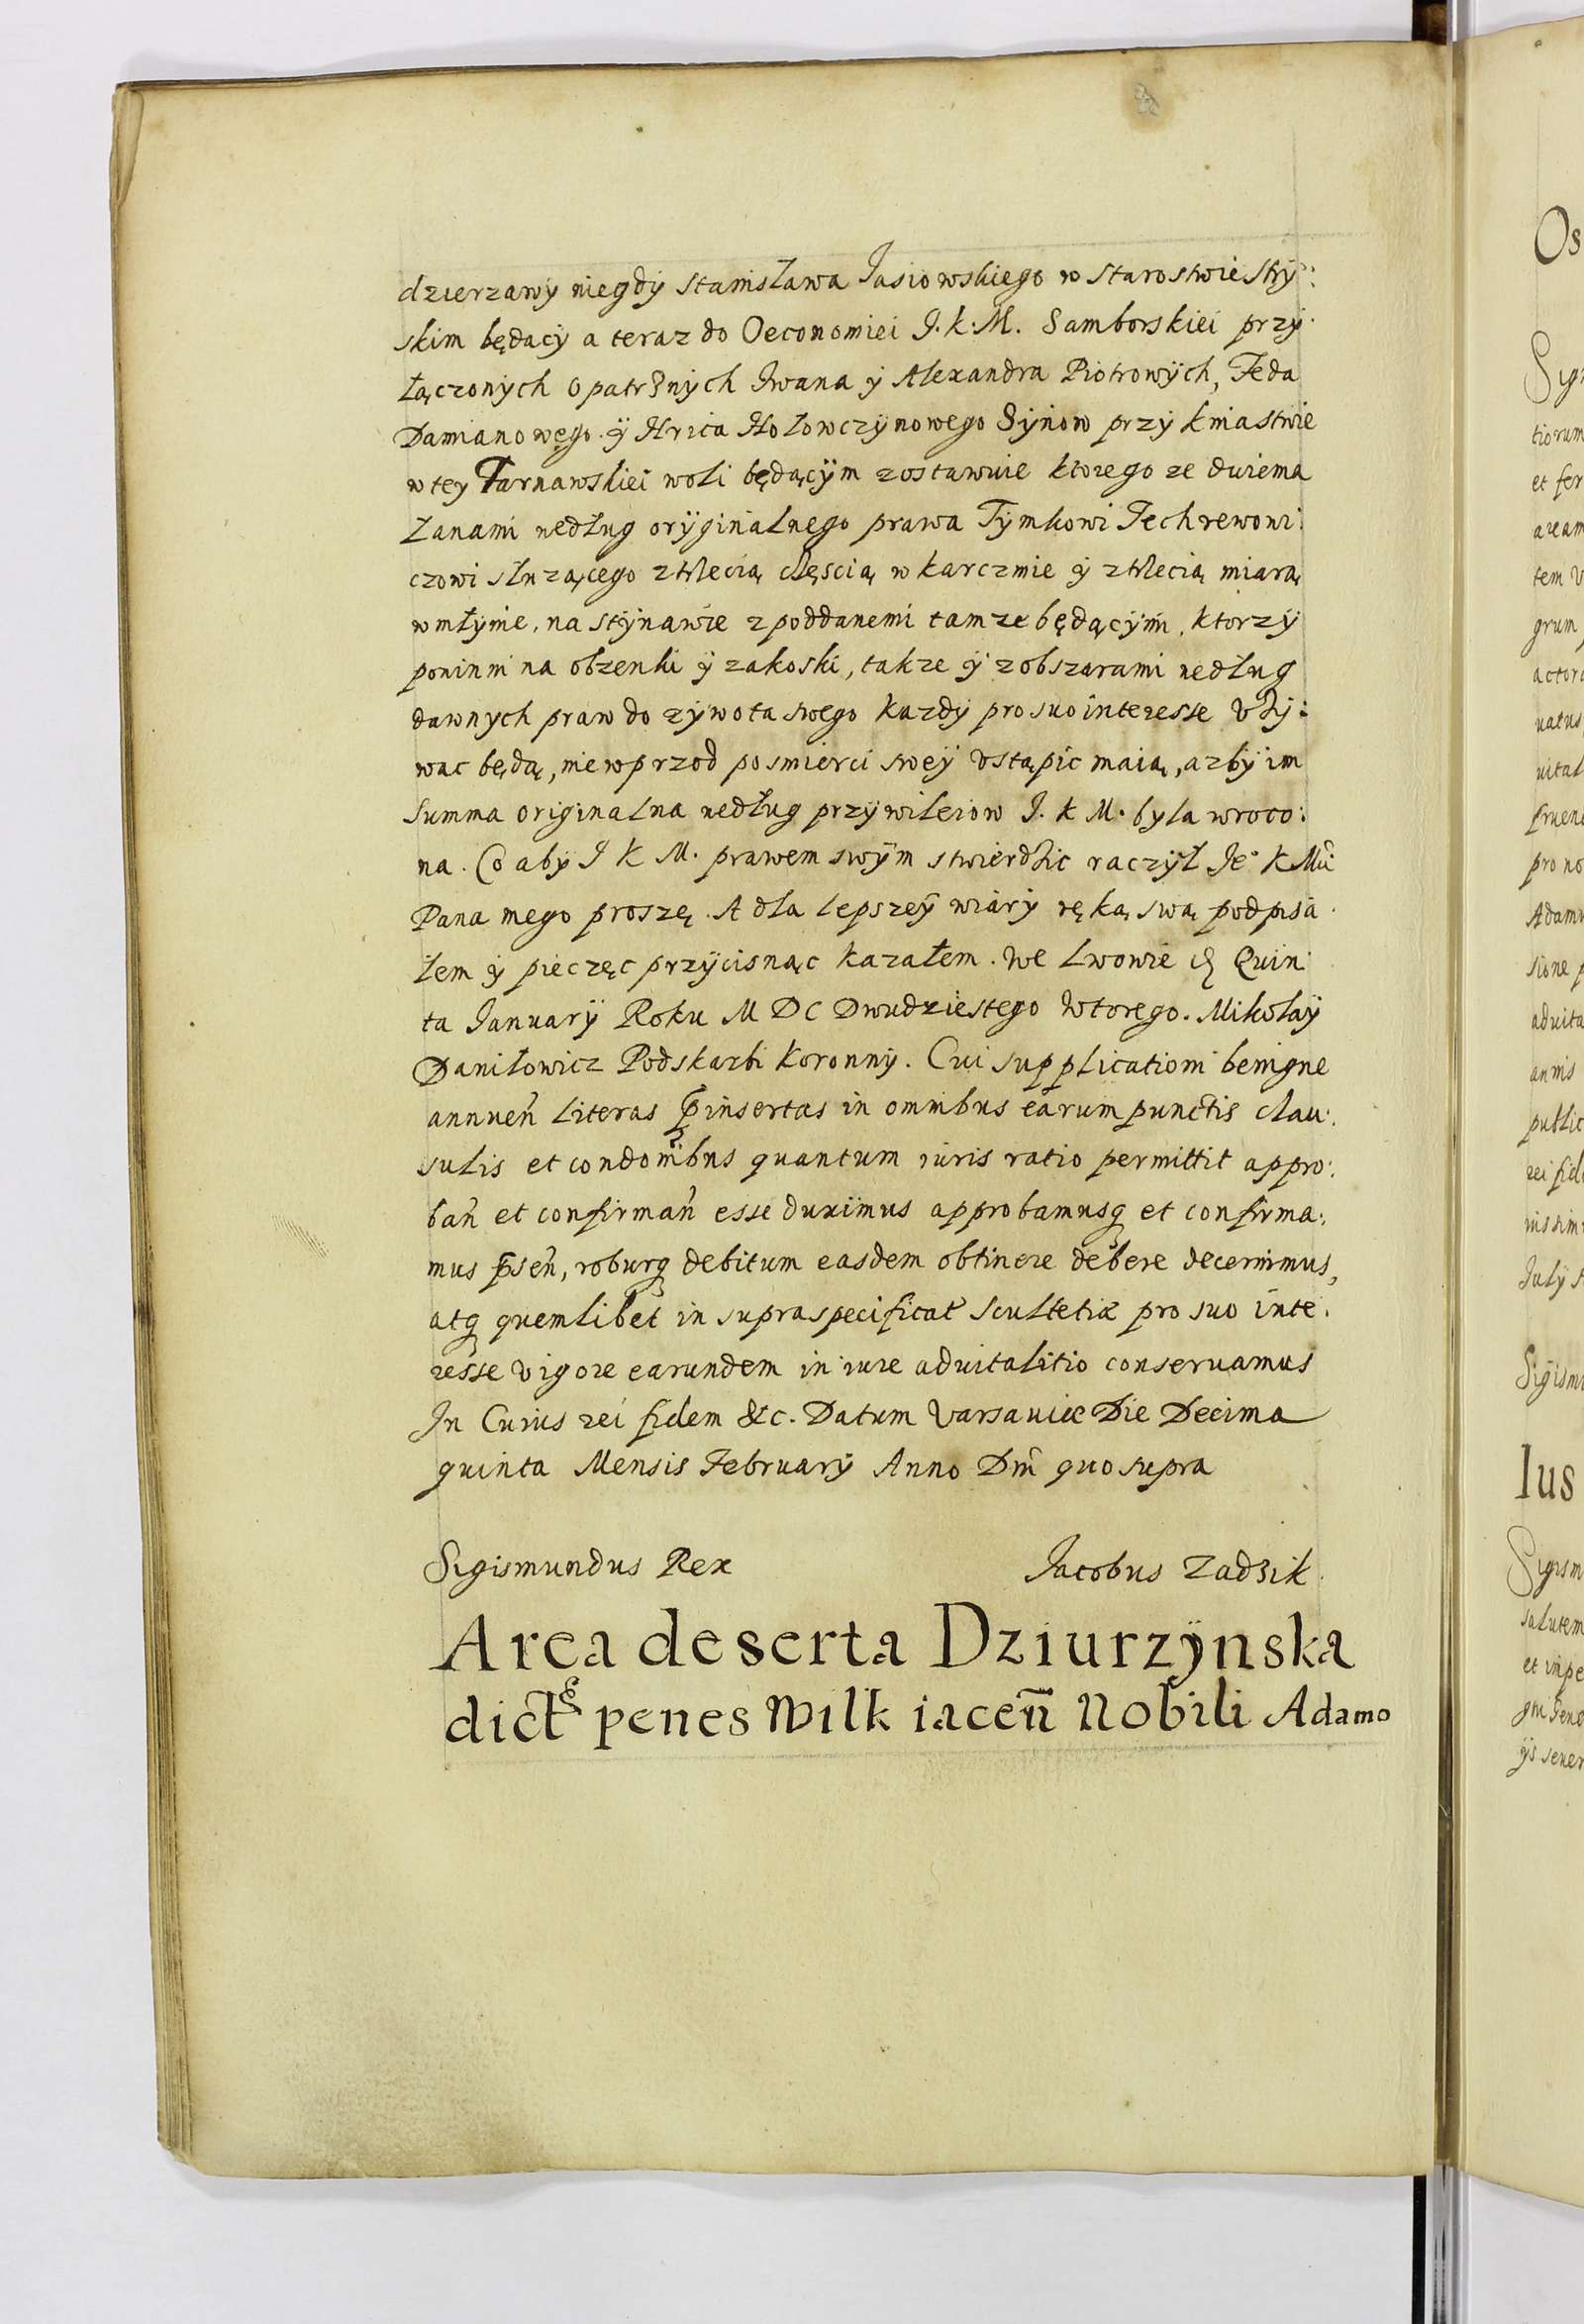 dzierzawy niegdy Stanisława Jasiowskiego w Starostwie Stry:
skim będacy a teraz do Oeconomiei J. K. M. Samborskiei przy:
łączonych opatrznych Iwana ÿ Alexandra Piotrowÿch, Feda
Damianowego ÿ Hrica Hołowczÿnowego Sÿnow przÿ kniastwie
w tey Tarnawskiei woli będącÿm zostawuie ktorego ze dwiema
Łanami według orÿginalnego prawa Tÿmkowi Fechrewoni:
czowi słuzącego z trzecią częscią w karczmie ÿ z trzecią miarą
w młÿnie, na stÿnawie z poddanemi tamze będącÿmi, ktorzÿ
powinni na obzenki ÿ zakoski, takze ÿ z obszarami według
dawnych praw do zÿwota swego kazdÿ pro suo interesse Vzÿ:
wac będą, nie wprzod po smierci sweÿ Vstąpic maią, azbÿ im
summa originalna według przÿwileiow J. K M. byla wroco:
na. Co abÿ J K M. prawem swÿm stwierdzic raczÿł Je° K Mci
Pana mego proszę. A dla lepszeÿ wiarÿ ręką swą podpisa
łem ÿ pieczęc przÿcisnąc kazałem. We Lwowie Quin
ta Januarÿ Roku M DC Dwudziestego Wtorego. Mikołaÿ
Daniłowicz Podskarbi koronnÿ. Cui supplicationi benigne
annuen̄ Literas p̄insertas in omnibus earum punctis clau:
sulis et condonibus quantum iuris ratio permittit appro:
ban̄ et confirman̄ esse duximus approbamusq et confirma:
mus p̄sen̄, roburq debitum easdem obtinere debere decernimus,
atq quemlibet in supraspecificat Scultetiæ pro suo inte:
resse vigore earundem in iure aduitalitio conseruamus
In Cuius rei fidem &c. Datum Varsauiæ Die Decima
quinta Mensis Februarÿ Anno Dm̄ quo supra
Sigismundus Rex Jacobus Zadzik.
Area deserta Dziurzÿnska
dictę penes Wilk iacen̄ Nobili Adamo